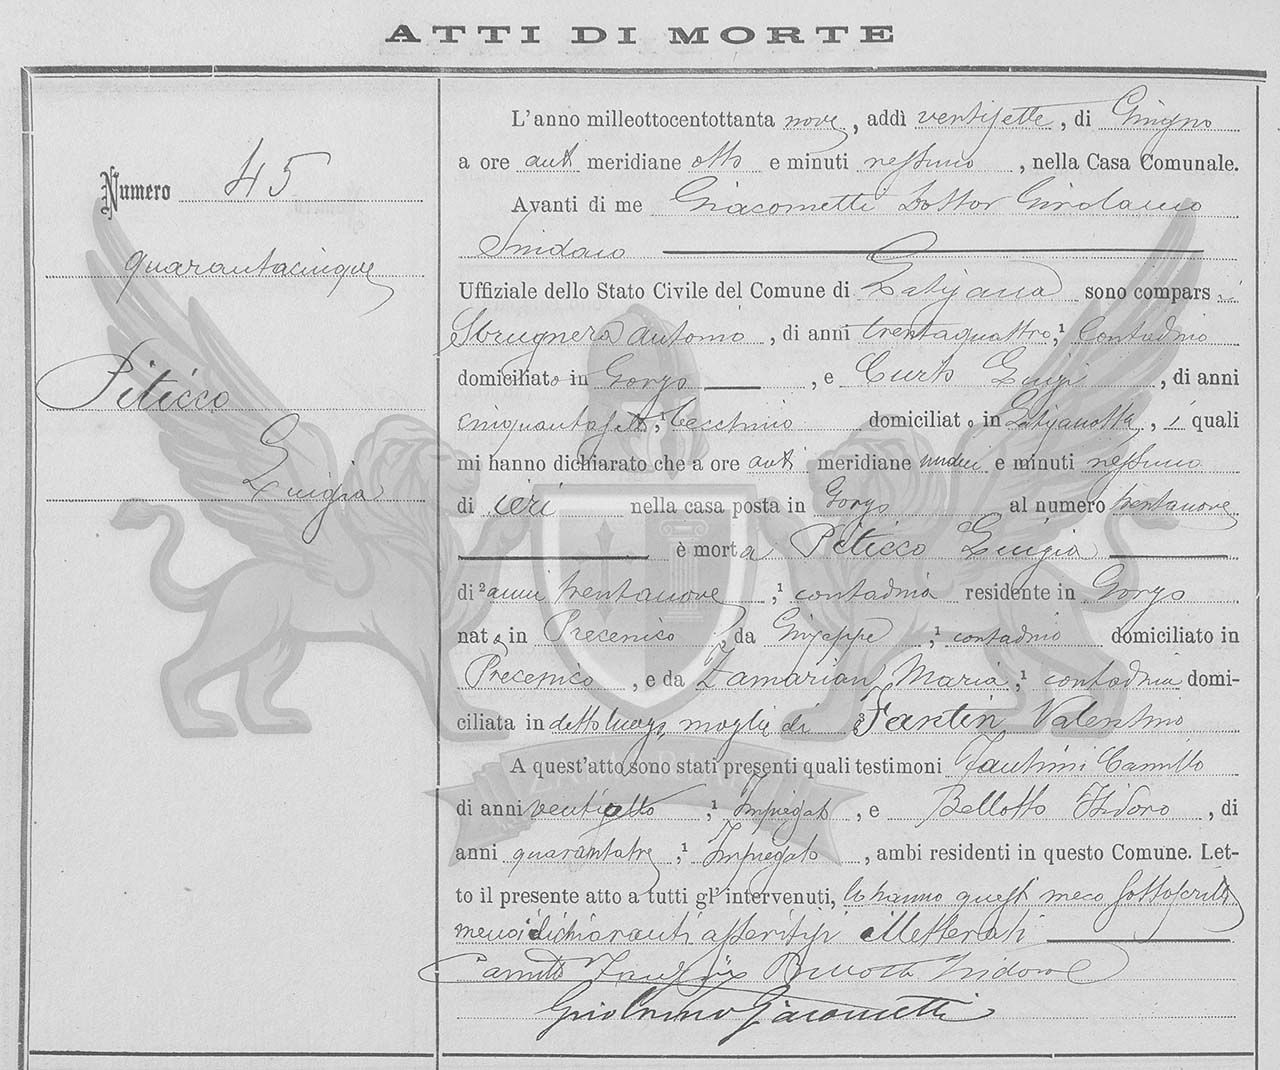 ATTI DI MORTE
Numero 45
quarantacinque
Piticco
Luigia
L'anno milleottocentottanta nove, addì ventisette, di Giugno
a ore anti meridiane otto e minuti nessuno, nella Casa Comunale.
Avanti di me Giacometti Dottor Girolamo
Sindaco
Uffiziale dello Stato Civile del Comune di Latisana sono compars i
Sbrugnera Antonio, di anni trentaquattro,¹ Contadino
domiciliato in Gorgo, e Curto Luigi, di anni
cinquantasett,¹ domiciliato in Latisanotta, i quali
mi hanno dichiarato che a ore anti meridiane undici e minuti nessuno
di ieri nella casa posta in Gorgo al numero trentanove
è morta Piticco Luigia
di ²anni trentanove,¹ contadina residente in Gorgo
nata in Precenico, da Giuseppe,¹ contadino domiciliato in
Precenico, e da Zamarian Maria,¹ contadina domi-
ciliata in detto luogo, moglie di ³Fantin Valentino
A quest'atto sono stati presenti quali testimoni Fantini Camillo
di anni ventiotto,¹ Impiegato, e Bellotto Isidoro, di
anni quarantatre,¹ Impiegato, ambi residenti in questo Comune. Let-
to il presente atto a tutti gl'intervenuti, lo hanno questi meco sottoscritto
meno i dichiaranti assertisi illetterati
Camillo Isidoro
Girolamo Giacometti